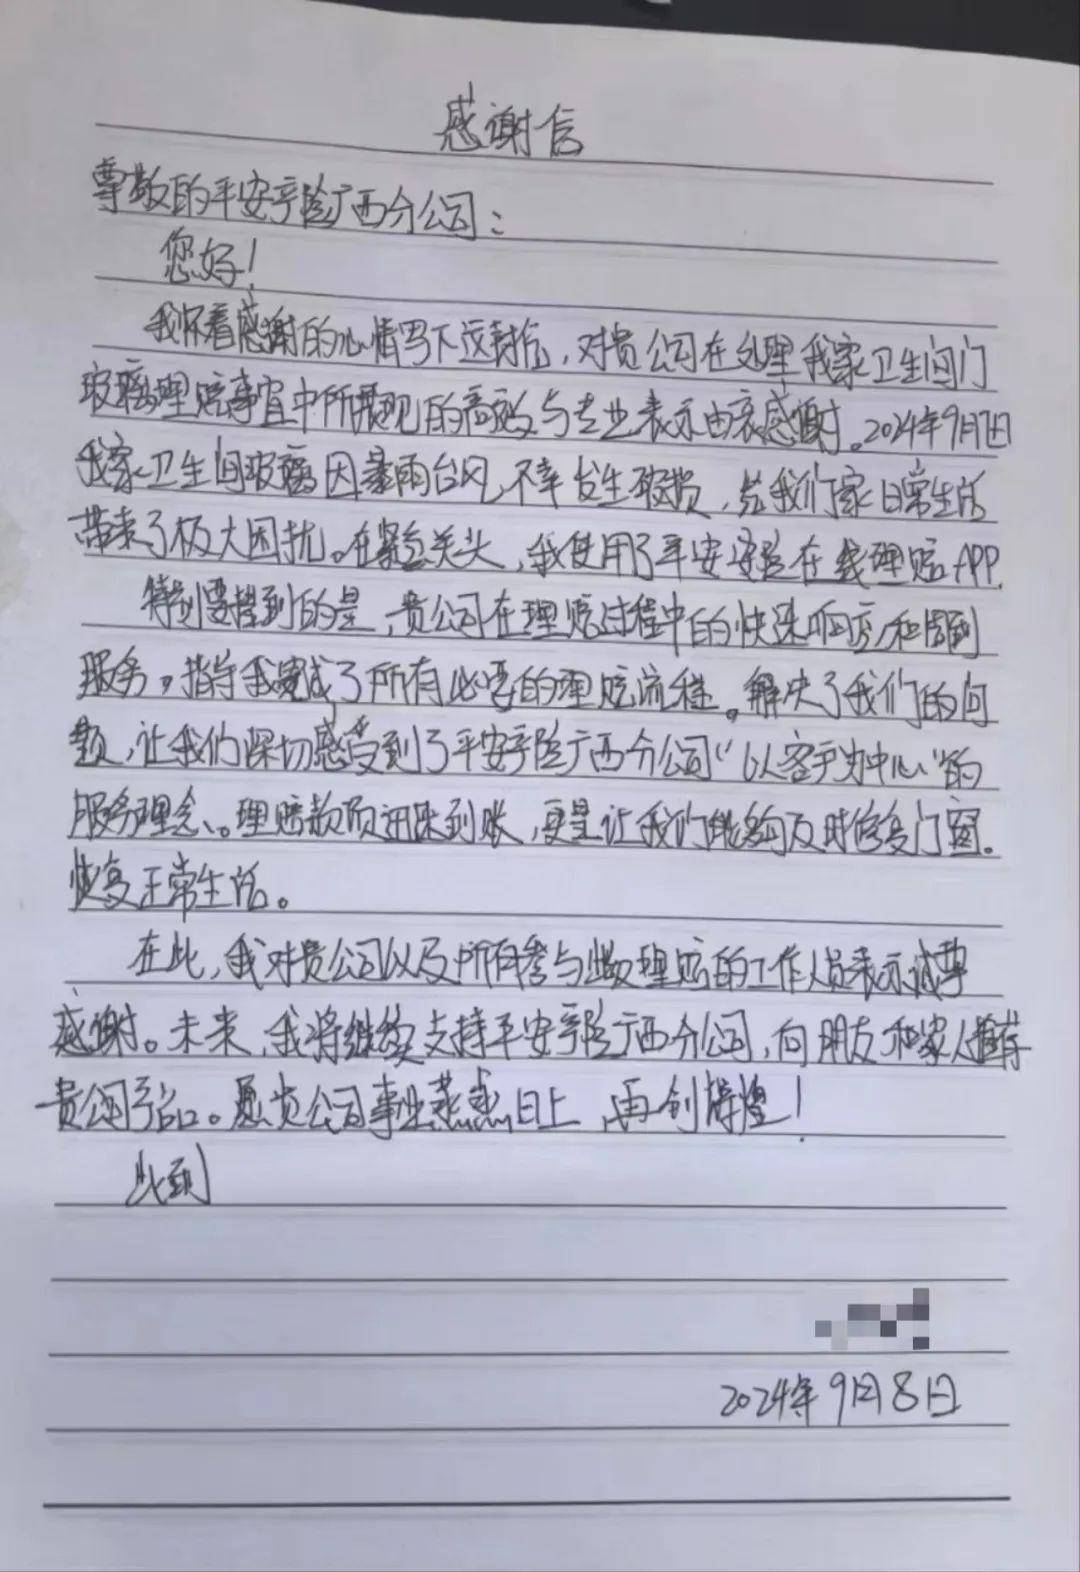 感谢信
尊敬的平安产险广西分公司：
您好！
我怀着感谢的心情写下这封信，对贵公司在处理我家卫生间门
玻璃理赔事宜中所展现的高效与专业表示由衷感谢。2024年9月7日
我家卫生间玻璃因暴雨台风不幸发生破损，给我们家日常生活
带来了极大困扰。在紧急关头，我使用了平安产险在线理赔APP.
特别要提到的是，贵公司在理赔过程中的快速响应和周到
服务，指导我完成了所有必要的理赔流程。解决了我们的问
题，让我们深切感受到了平安产险广西分公司“以客户为中心”的
服务理念、。理赔款项迅速到账，更是让我们能够及时修复门窗。
恢复正常生活。
在此，我对贵公司以及所有参与此次理赔的工作人员表示诚挚
感谢。未来，我将继续支持平安产险广西分公司，向朋友和家人推荐
贵公司产品。愿贵公司事业蒸蒸日上，再创辉煌！
此致
2024年9月8日